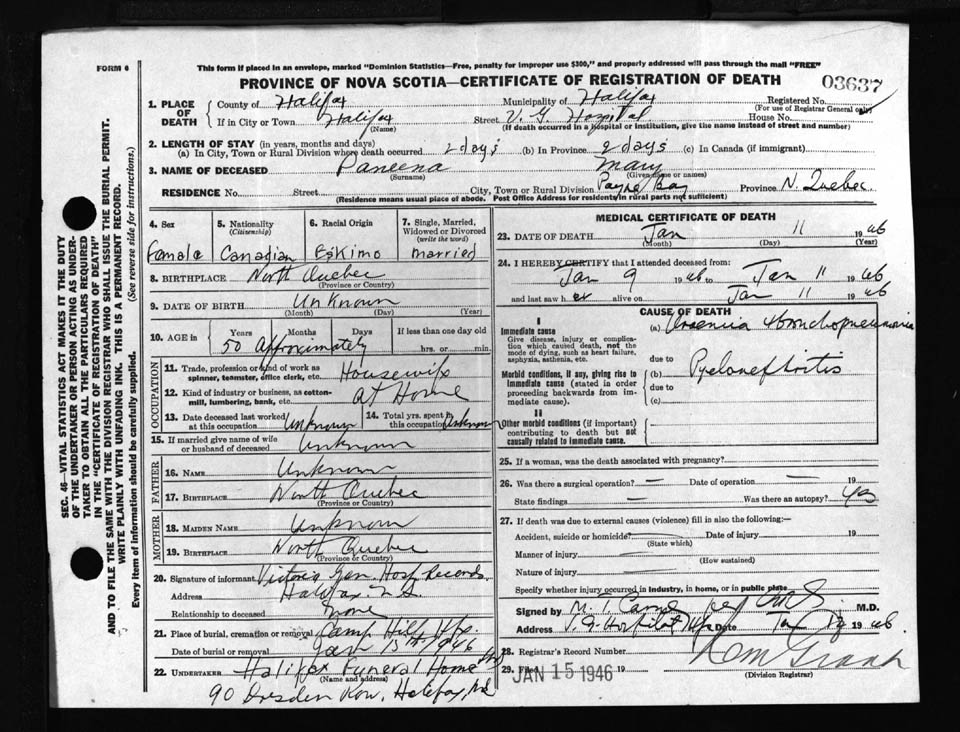 FORM 6
This form if placed in an envelope, marked "Dominion Statistics—Free, penalty for improper use $300," and properly addressed will pass through the mail "FREE"
PROVINCE OF NOVA SCOTIA—CERTIFICATE OF REGISTRATION OF DEATH
03637
1. PLACE OF DEATH
County of Halifax Municipality of Halifax Registered No.
(For use of Registrar General only)
If in City or Town Halifax Street V. G. Hospital House No.
(Name) (If death occurred in a hospital or institution, give the name instead of street and number)
2. LENGTH OF STAY (in years, months and days)
(a) In City, Town or Rural Division where death occurred 2 days (b) In Province 2 days (c) In Canada (if immigrant)
3. NAME OF DECEASED Paneena Mary
(Surname) (Given name or names)
RESIDENCE No. Street City, Town or Rural Division Payne Bay Province N. Quebec
(Residence means usual place of abode. Post Office Address for residents in rural parts not sufficient)
SEC. 46—VITAL STATISTICS ACT MAKES IT THE DUTY
OF THE UNDERTAKER OR PERSON ACTING AS UNDER-
TAKER TO OBTAIN ALL THE PARTICULARS REQUIRED
IN THE "CERTIFICATE OF REGISTRATION OF DEATH"
AND TO FILE THE SAME WITH THE DIVISION REGISTRAR WHO SHALL ISSUE THE BURIAL PERMIT.
WRITE PLAINLY WITH UNFADING INK. THIS IS A PERMANENT RECORD.
Every item of information should be carefully supplied. (See reverse side for instructions.)
4. Sex 5. Nationality (Citizenship) 6. Racial Origin 7. Single, Married, Widowed or Divorced (write the word)
Female Canadian Eskimo married
8. BIRTHPLACE North Quebec
(Province or Country)
9. DATE OF BIRTH Unknown
(Month) (Day) (Year)
10. AGE in Years Months Days If less than one day old
50 Approximately hrs. or min.
OCCUPATION
11. Trade, profession or kind of work as spinner, teamster, office clerk, etc. Housewife
12. Kind of industry or business, as cotton-mill, lumbering, bank, etc. at Home
13. Date deceased last worked at this occupation Unknown 14. Total yrs. spent in this occupation Unknown
15. If married give name of wife or husband of deceased Unknown
FATHER
16. NAME Unknown
17. BIRTHPLACE North Quebec
(Province or Country)
MOTHER
18. MAIDEN NAME Unknown
19. BIRTHPLACE North Quebec
(Province or Country)
20. Signature of informant Victoria Gen. Hosp Records
Address Halifax N.S.
Relationship to deceased None
21. Place of burial, cremation or removal Camp Hill Hfx.
Date of burial or removal Jan 13th 1946
22. UNDERTAKER Halifax Funeral Home
(Name and address)
90 Dresden Row, Halifax, N.S.
MEDICAL CERTIFICATE OF DEATH
23. DATE OF DEATH Jan 11 1946
(Month) (Day) (Year)
24. I HEREBY CERTIFY that I attended deceased from:
Jan 9 1946 to Jan 11 1946
and last saw her alive on Jan 11 1946
CAUSE OF DEATH
I
Immediate cause (a) Uraemia bronchopneumonia
Give disease, injury or complication which caused death, not the mode of dying, such as heart failure, asphyxia, asthenia, etc.
due to
Morbid conditions, if any, giving rise to immediate cause (stated in order proceeding backwards from immediate cause).
(b) Pyelonephritis
due to
(c)
II
Other morbid conditions (if important) contributing to death but not causally related to immediate cause.
25. If a woman, was the death associated with pregnancy?
26. Was there a surgical operation? — Date of operation — 19
State findings — Was there an autopsy? Yes
27. If death was due to external causes (violence) fill in also the following:—
Accident, suicide or homicide? Date of injury 19
(State which)
Manner of injury
(How sustained)
Nature of injury
Specify whether injury occurred in industry, in home, or in public place
Signed by M. T. M.D.
Address V. G. Hospital Hfx Date Jan 1946
28. Registrar's Record Number
29. Filed JAN 15 1946 19
(Division Registrar)